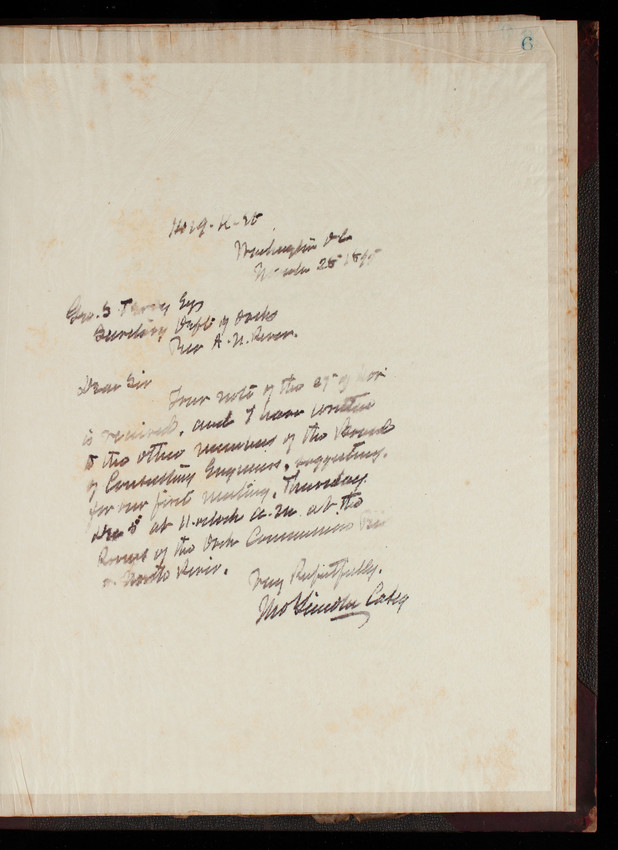 6
Washington D.C.
November 28 1895
Geo. S. Terry Esq
Secretary Dept of Docks
Pier A. N. River.
Dear Sir
Your note of the 27th of Nov
is received, and I have written
to the other members of the Board
of Consulting Engineers, suggesting,
for our first meeting, Thursday
Dec 5 at 11 o'clock a.m. at the
Rooms of the Dock Commissioners Pier
A North River.
Very Respectfully,
Thos Lincoln Casey